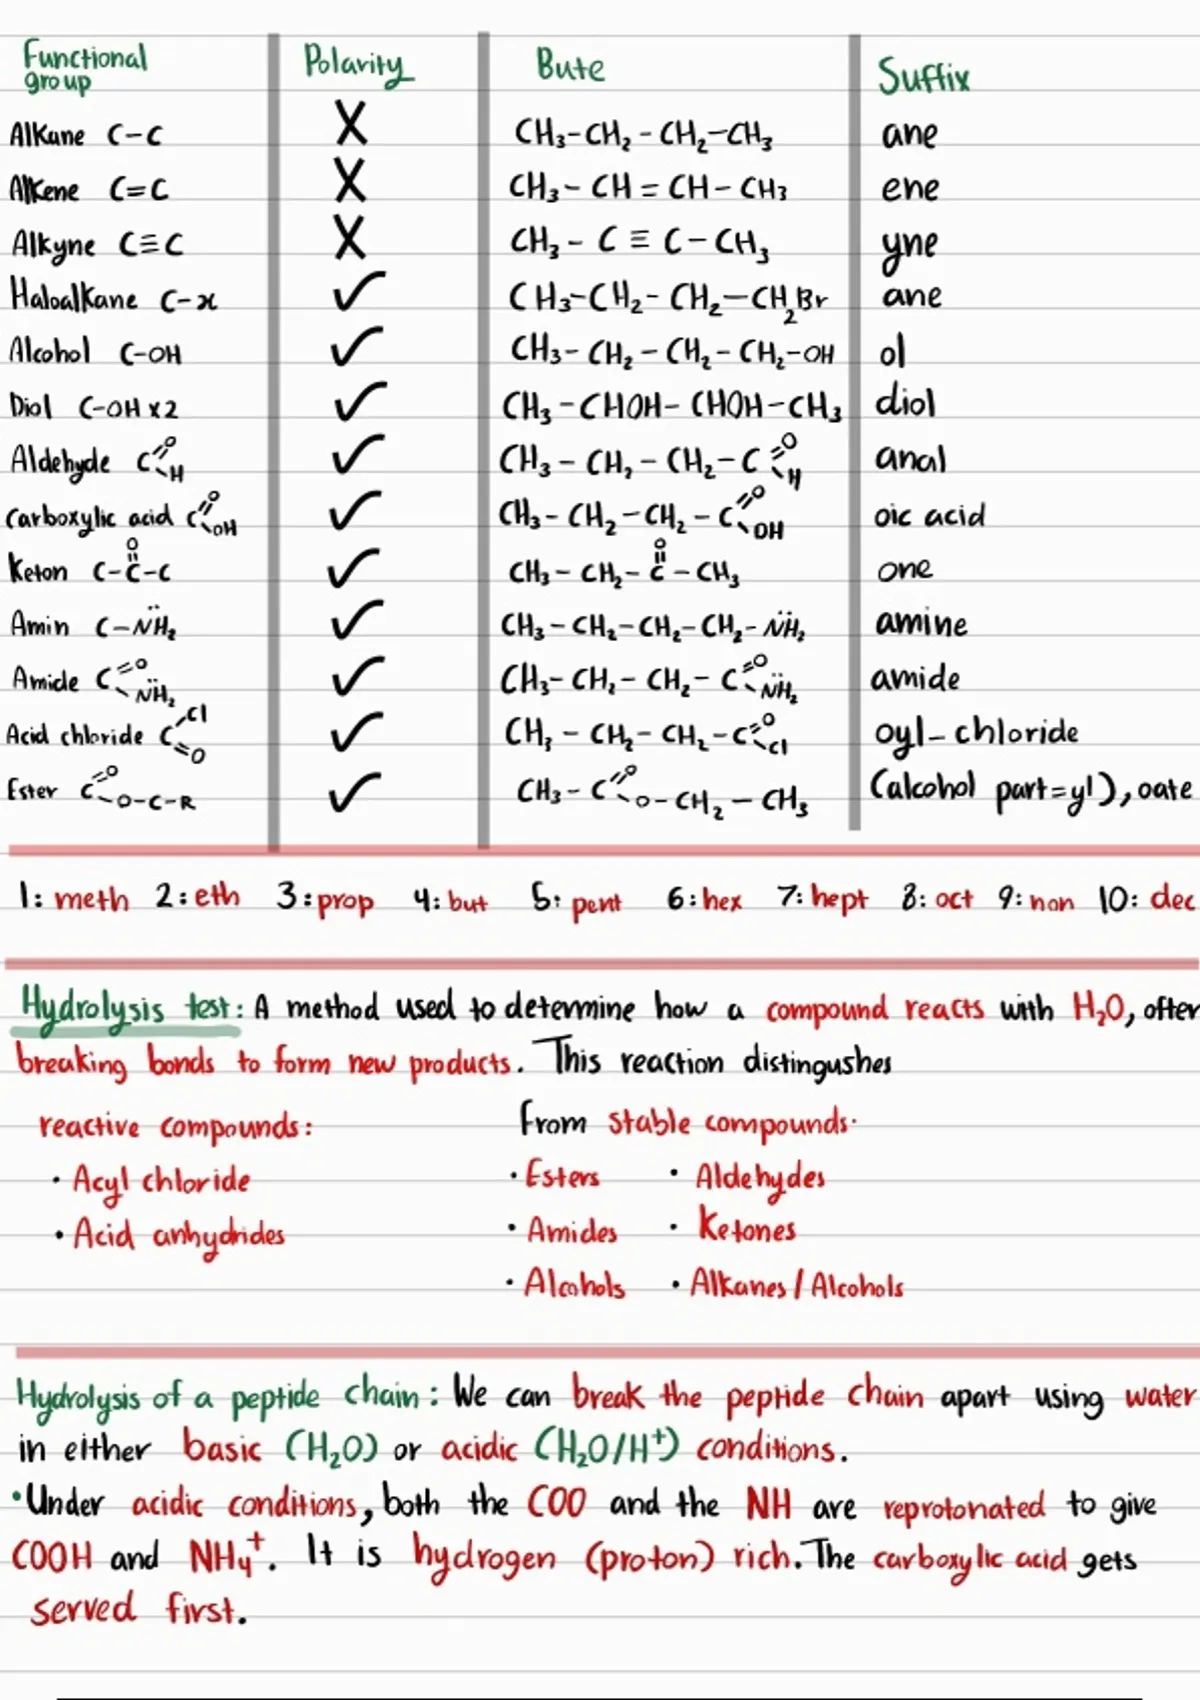 Functional group Polarity Bute Suffix
Alkane C-C X CH₃-CH₂-CH₂-CH₃ ane
Alkene C=C X CH₃-CH=CH-CH₃ ene
Alkyne C≡C X CH₃-C≡C-CH₃ yne
Haloalkane C-x ✓ CH₃-CH₂-CH₂-CH₂Br ane
Alcohol C-OH ✓ CH₃-CH₂-CH₂-CH₂-OH ol
Diol C-OH x2 ✓ CH₃-CHOH-CHOH-CH₃ diol
Aldehyde C=O-H ✓ CH₃-CH₂-CH₂-C=O-H anal
Carboxylic acid C=O-OH ✓ CH₃-CH₂-CH₂-C=O-OH oic acid
Keton C-C=O-C ✓ CH₃-CH₂-C=O-CH₃ one
Amin C-N̈H₂ ✓ CH₃-CH₂-CH₂-CH₂-N̈H₂ amine
Amide C=O-N̈H₂ ✓ CH₃-CH₂-CH₂-C=O-N̈H₂ amide
Acid chloride C-Cl=O ✓ CH₃-CH₂-CH₂-C=O-Cl oyl-chloride
Ester C=O-O-C-R ✓ CH₃-C=O-O-CH₂-CH₃ (alcohol part=yl), oate
1: meth 2: eth 3: prop 4: but 5: pent 6: hex 7: hept 8: oct 9: non 10: dec
Hydrolysis test: A method used to determine how a compound reacts with H₂O, often
breaking bonds to form new products. This reaction distingushes
reactive compounds: From stable compounds.
• Acyl chloride • Esters • Aldehydes
• Acid anhydrides • Amides • Ketones
• Alcohols • Alkanes / Alcohols
Hydrolysis of a peptide chain: We can break the peptide chain apart using water
in either basic (H₂O) or acidic (H₂O/H⁺) conditions.
• Under acidic conditions, both the COO and the NH are reprotonated to give
COOH and NH₄⁺. It is hydrogen (proton) rich. The carboxylic acid gets
served first.